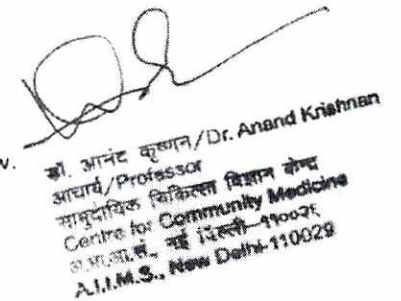 v.
डॉ. आनंद कृष्णन/Dr. Anand Krishnan
आचार्य/Professor
सामुदायिक चिकित्सा विज्ञान केन्द्र
Centre for Community Medicine
अ.भा.आ.सं., नई दिल्ली-११००२९
A.I.I.M.S., New Delhi-110029